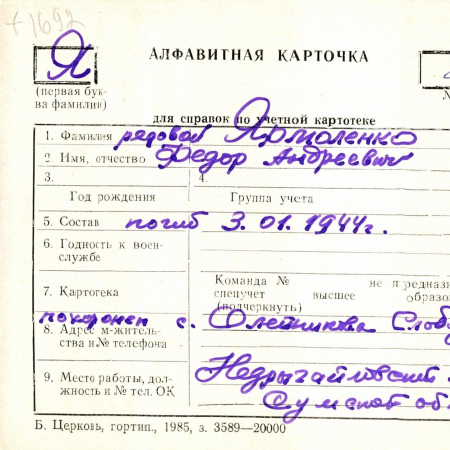 +1692
Я
АЛФАВИТНАЯ КАРТОЧКА
(первая бук-
ва фамилии)
для справок по учетной картотеке
1. Фамилия рядовой Ярмоленко
2 Имя, отчество Федор Андреевич
3. 4.
Год рождения Группа учета
5. Состав погиб 3.01.1944г.
6. Годность к воен-
службе
7. Картотека
Команда № не предназ
спецучет высшее образо
(подчеркнуть)
похоронен с. Слоб
8. Адрес м-житель-
ства и № телефона
Недригайловский
9. Место работы, дол-
жность и № тел. ОК
Сумской об
Б. Церковь, гортип., 1985, з. 3589—20000